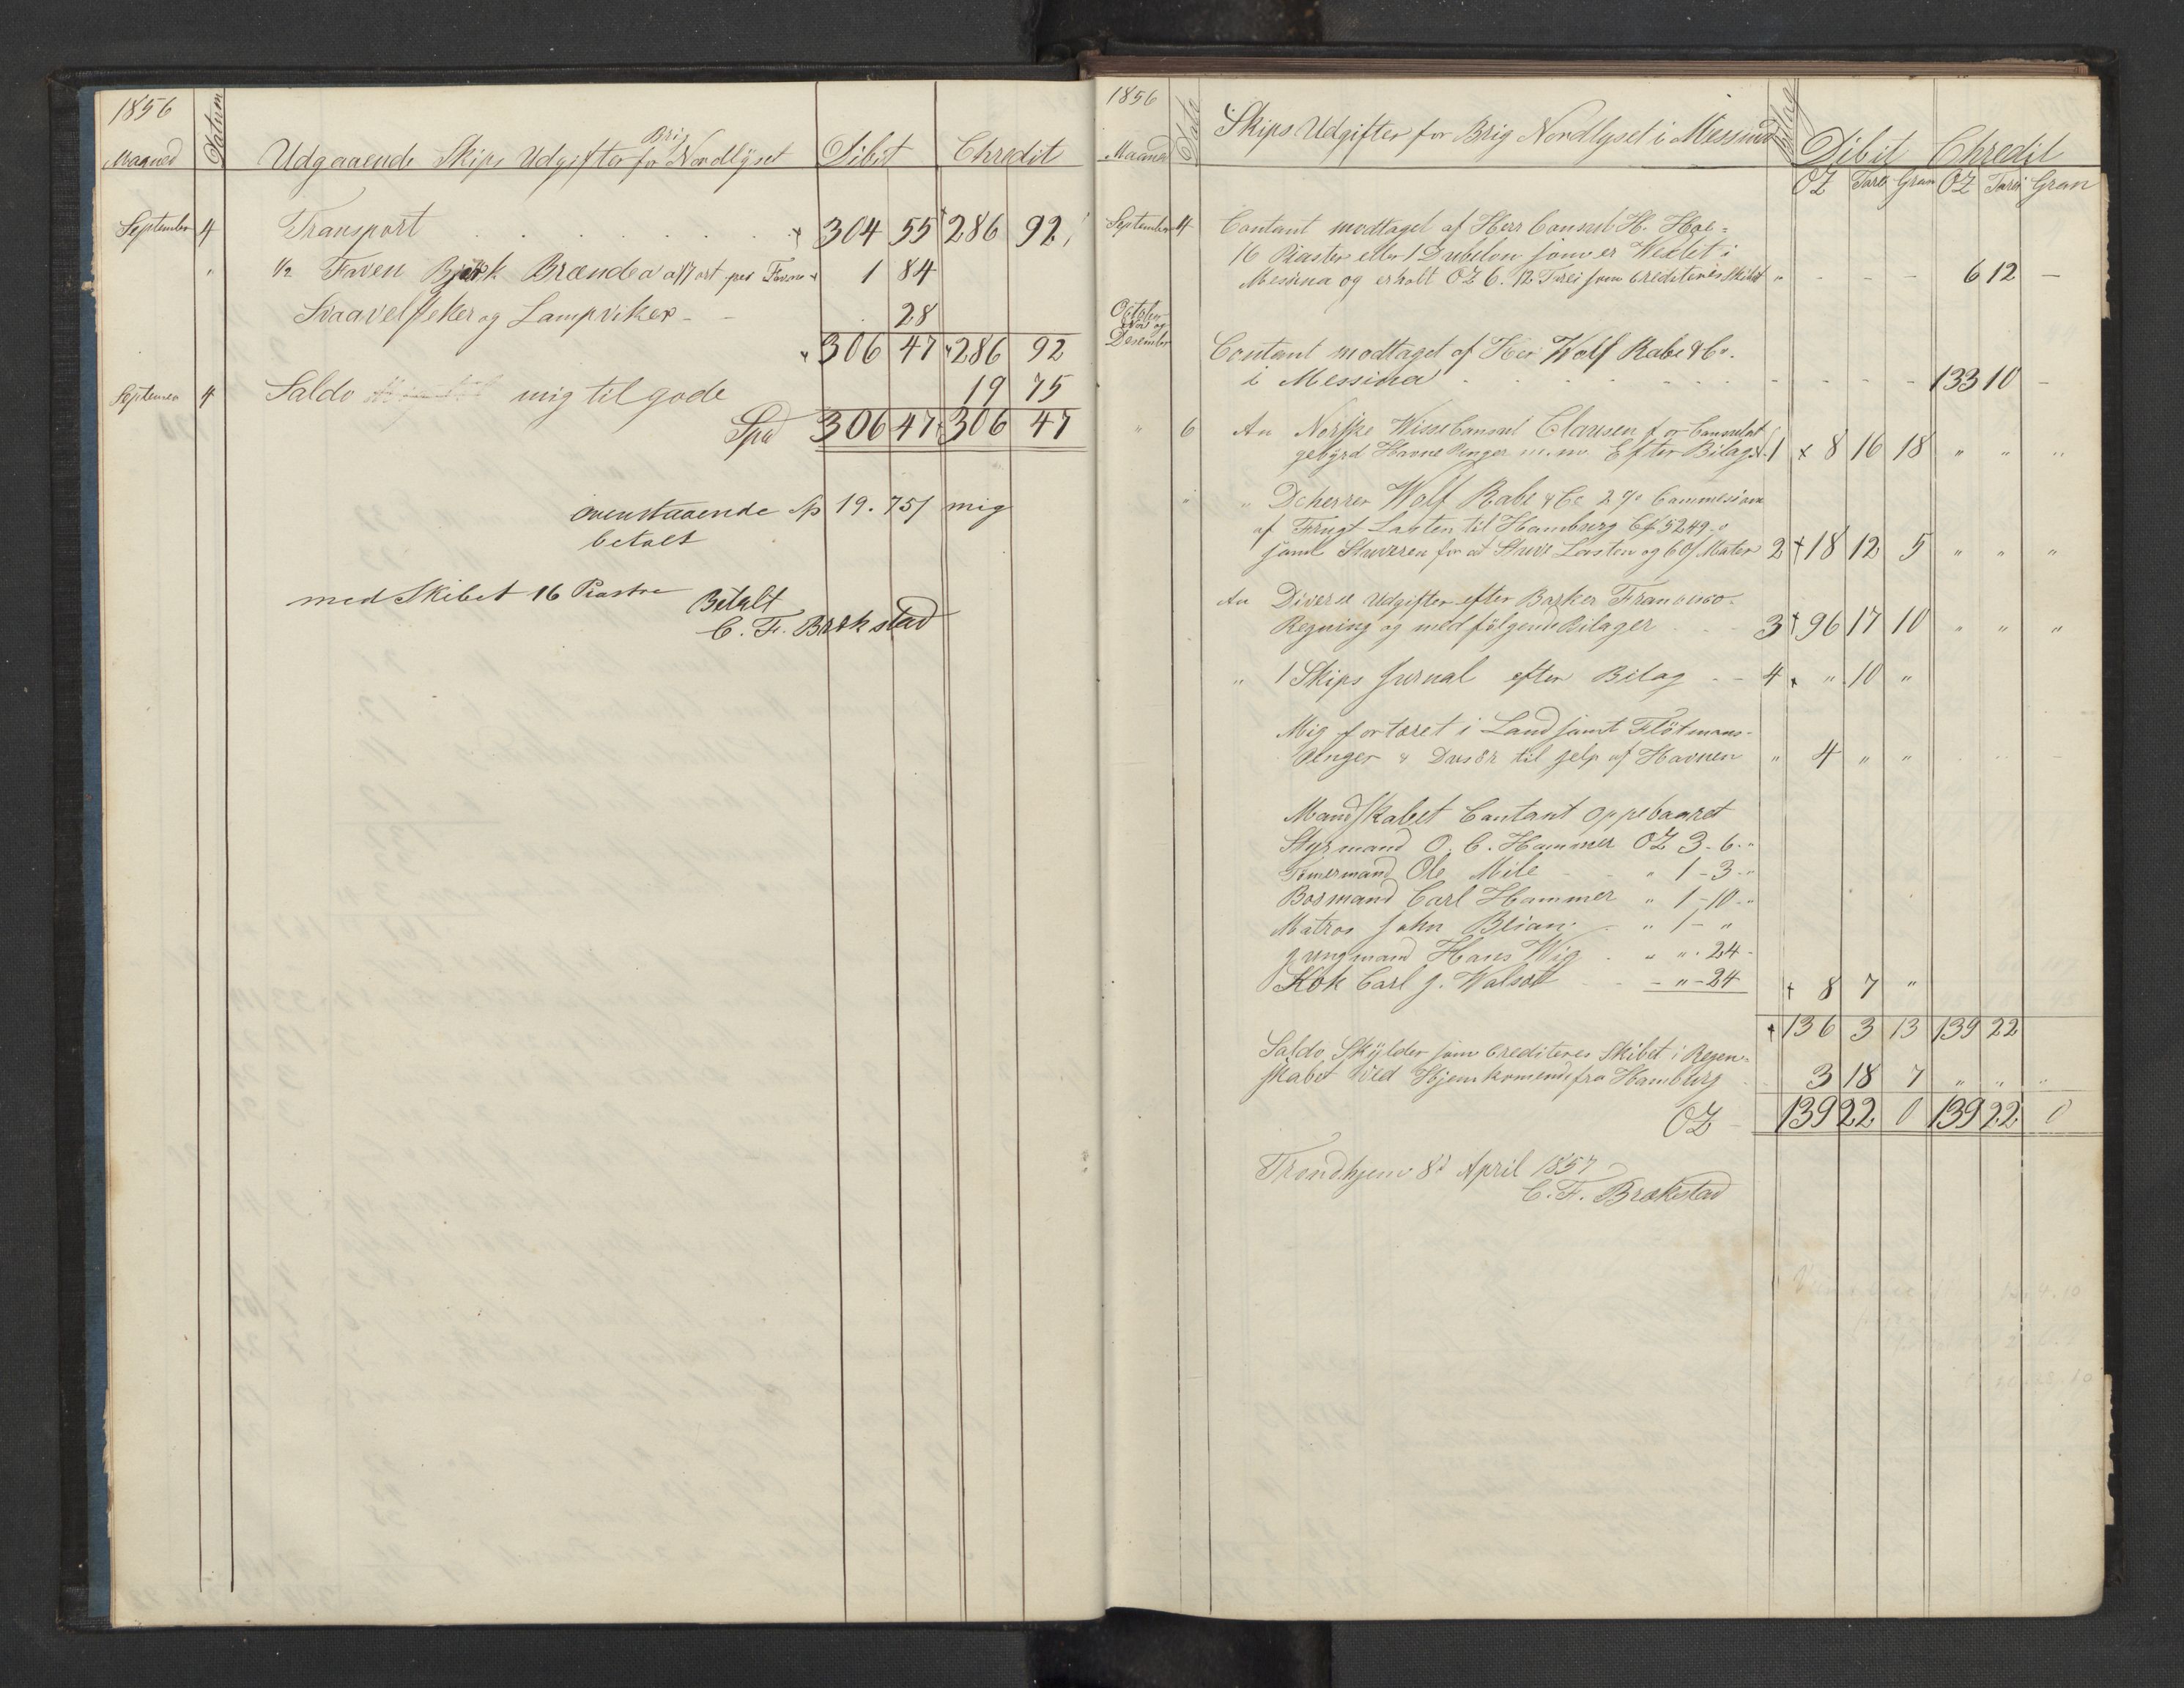 1856
Maaned Datum Udgaaende Skips Udgifter for Brig Nordlyset Dibit Chredit
September 4 Transport . . . . . . . 304 55 286 92
" ½ Faven Bjørk Brænde a 17 ort per Favn 1 84
Svaavelsteker og Lampviker - - 28
306 47 286 92
September 4 Saldo mig til gode 19 75
Spd 306 47 306 47
ovenstaaende Sp 19. 75/ mig
betalt
med Skibet 16 Piastre
Betalt
C. F. Brækstad
1856
Maaned Dato Skips Udgifter for Brig Nordlyset i Messina Bilag Dibit Chredit
OZ Tari Gran OZ Tari Gran
September 4 Contant modtaget af Herr Consul H. Hoe=
16 Piaster eller 1 Dubelon som er Wexlet i
Messina og erholt OZ 6. 12 Tarei som Crediteres Skibet " - - - 6 12 -
October
Nov og
Desember
Contant modtaget af Her Wolf Rabe & Co.
i Messina . . . . . . 133 10 -
" 6 An Norske Wisse Consul Clausen f o Consulat
gebyrd Havne Penger m.m. Efter Bilag N. 1 8 16 18 " " "
" " Deherrer Wolf Rabe & Co 2 % Commesion
af Frugt Lasten til Hamburg 5249
samt Stuveren for at Stuve Lasten og 60/ Mater 2 18 12 5 " " "
An Diverse Udgifter efter Barker Francisco
Regning og med følgende Bilager . . 3 96 17 10 " " "
" 1 Skips Jurnal efter Bilag - - 4 " 10 "
Mig fortæret i Land samt Flötmans-
Penger & Dusör til jelp af Havnen " 4 " "
Mandskabet Contant oppebaaret
Styrmand O. C. Hammer OZ 3 - 6 - "
Tømermand Ole Mile - " 1 - 3 - "
Bosmand Carl Hammer " 1 - 10 - "
Matros John Bleian . " 1 - "
jungmand Hans Wig . " " . 24 -
Kok Carl J. Walsöe - " - 24 8 7 "
136 3 13 139 22
Saldo Skylder som Crediteres Skibet i Regen=
skabet ved Hjemkomende fra Hamburg . . 3 18 7 " " "
OZ - 139 22 0 139 22 0
Trondhjem 8d April 1857
C. F. Brækstad